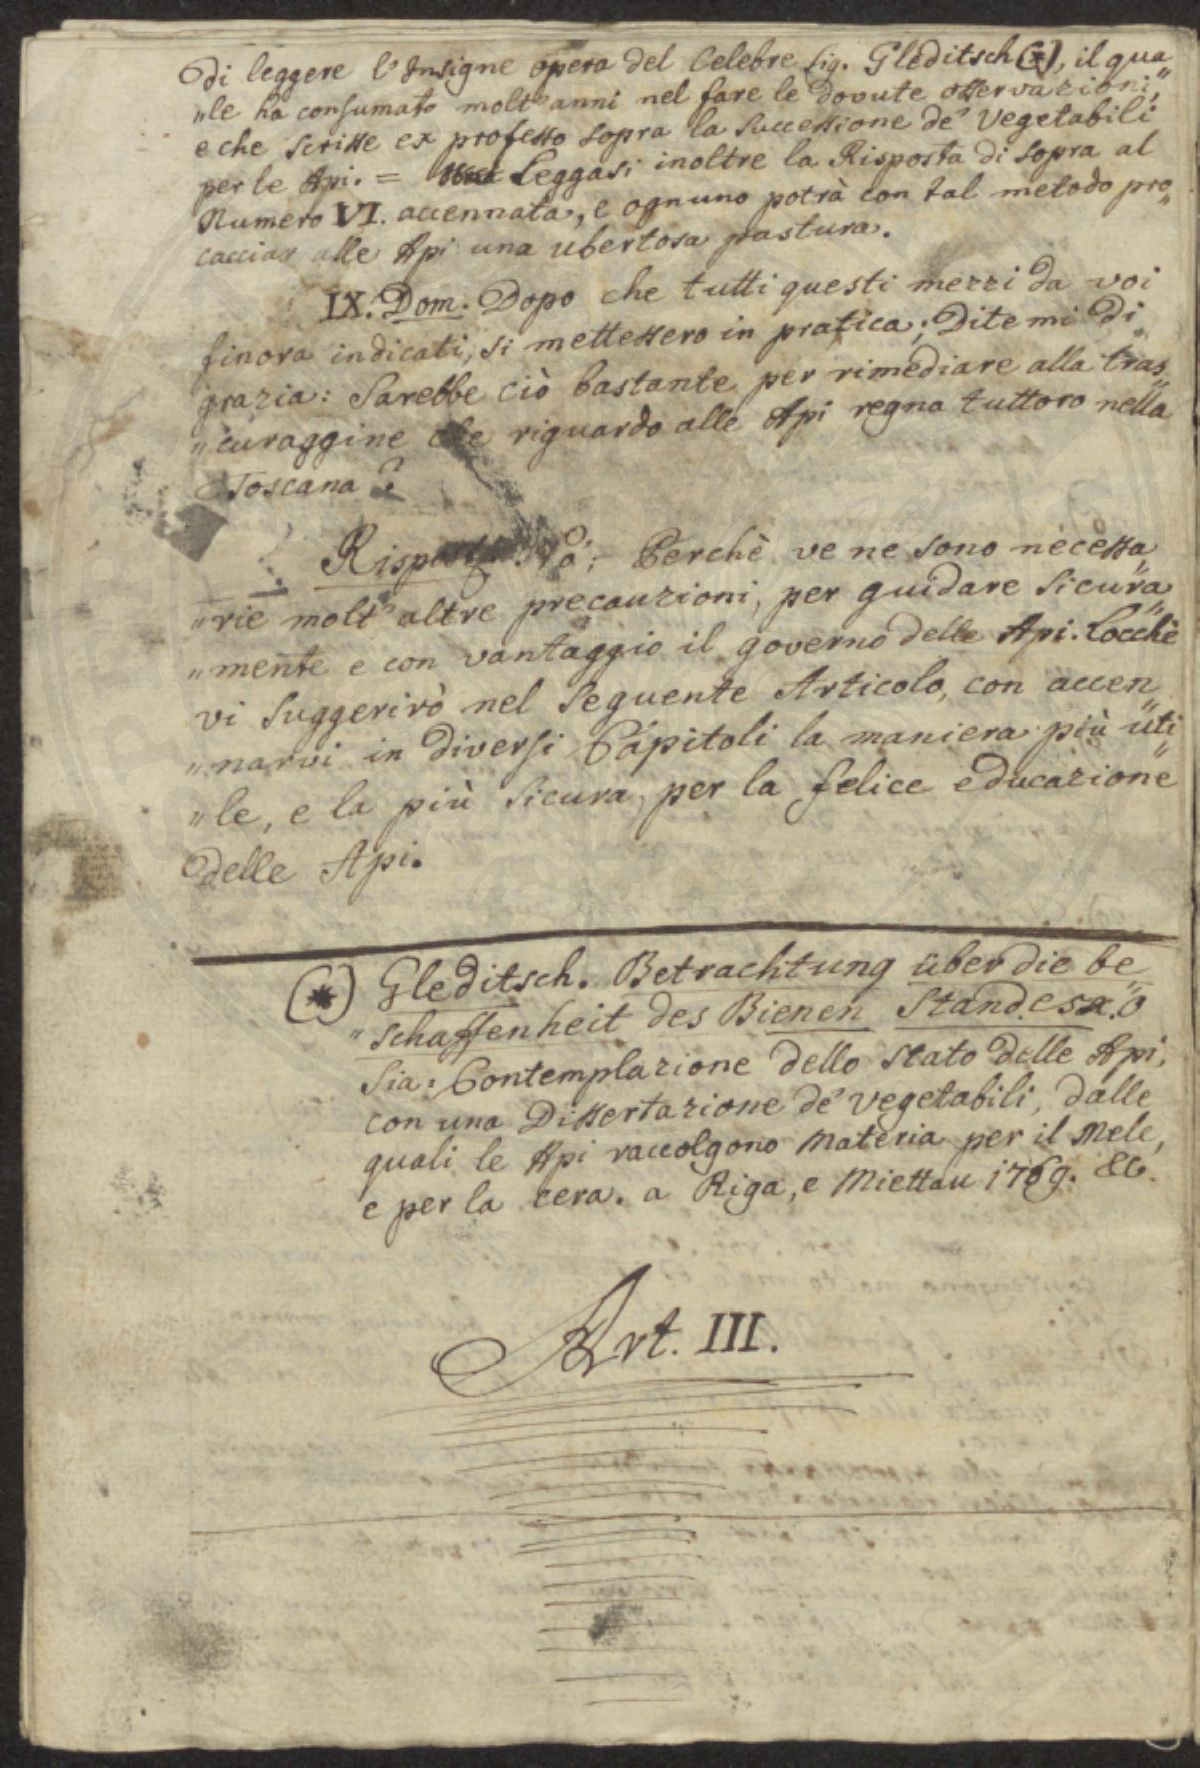 di leggere l'Insigne opera del Celebre Sig. Gleditsch (*), il qua„
„le ha consumato molt'anni nel fare le dovute osservazioni,
e che scrisse ex professo sopra la successione de' Vegetabili
per le Api. = Leggasi inoltre la Risposta di sopra al
Numero VI. accennata, e ognuno potrà con tal metodo pro„
cacciar alle Api una ubertosa pastura.
IX. Dom. Dopo che tutti questi mezzi da voi
finora indicati, si mettessero in pratica; Ditemi di
grazia: Sarebbe ciò bastante per rimediare alla tras„
„curaggine che riguardo alle Api regna tuttoro nella
Toscana?
Risposta. Nò; Perchè ve ne sono necessa„
„rie molt'altre precauzioni, per guidare sicura„
„mente e con vantaggio il governo delle Api. Locchè
vi suggerirò nel seguente Articolo, con accen„
„narvi in diversi Capitoli la maniera più uti„
„le, e la più sicura, per la felice educazione
delle Api.
(*) Gleditsch. Betrachtung über die be„
„schaffenheit des Bienen Standes. O
sia: Contemplazione dello stato delle Api,
con una Dissertazione de' vegetabili, dalle
quali le Api raccolgono materia per il Mele,
e per la cera. a Riga, e Miettau 1769. &c.
Art. III.